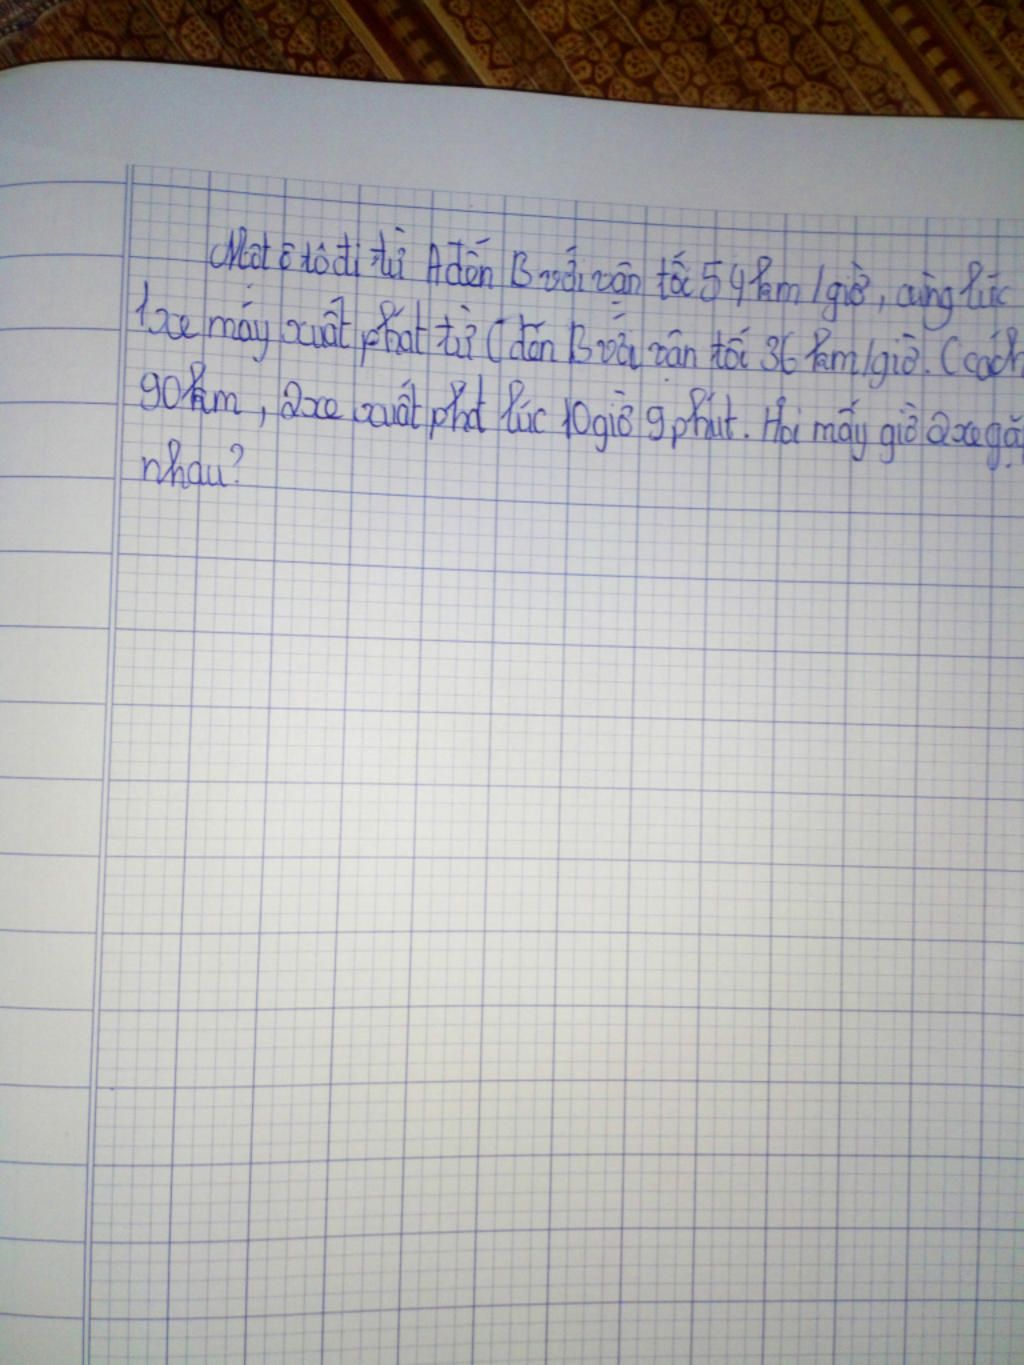 Một ô tô đi từ A đến B với vận tốc 54km/giờ, cùng lúc
1 xe máy xuất phát từ C đến B với vận tốc 36 km/giờ. C cách
90km, 2 xe xuất phát lúc 10 giờ 9 phút. Hỏi mấy giờ 2 xe gặp
nhau?